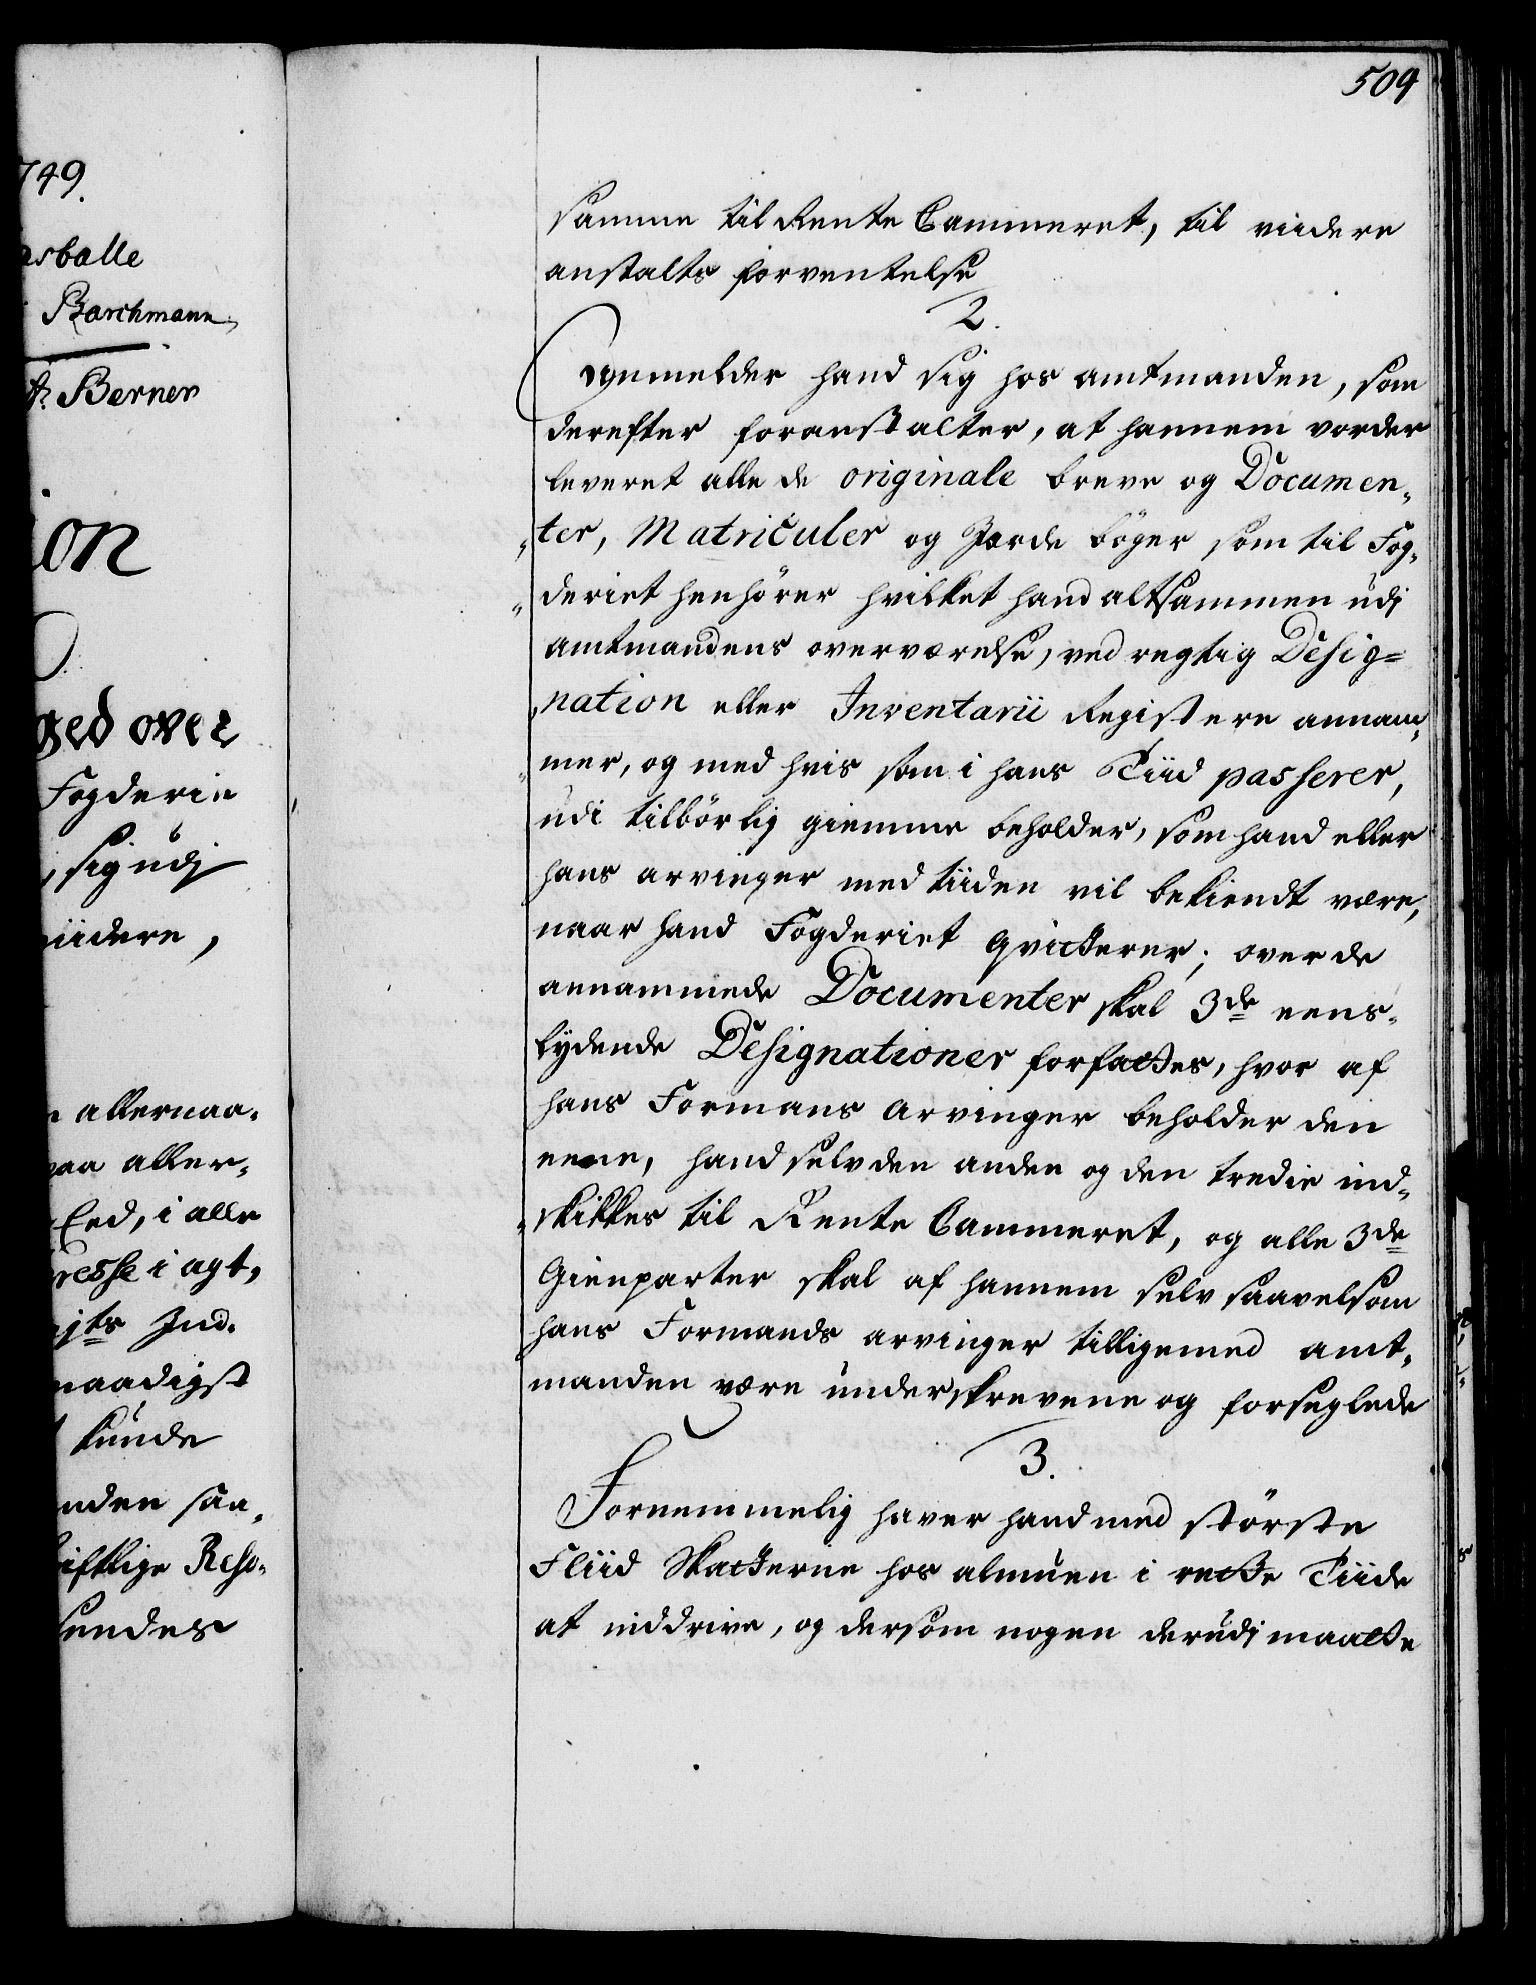 749.
asballe
Barchmann
A. Berner
ion
ged over
Fogderie
, sig udj
viidere,
allernaa-
paa aller-
Eed, i alle
resse i agt,
jts Ind-
naadigst
kunde
nden saa-
iftlige Reso-
sendes
509
samme til Rente Cammeret, til viidere
anstalts forventelse
2.
Anmelder hand sig hos amtmanden, som
derefter foranstalter, at hannem vorder
leveret alle de originale breve og Documen-
ter, Matriculer og Jorde bøger som til Fog-
deriet henhører hvilket hand altsammen udj
amtmandens overværelse, ved regtig Desig=
nation eller Inventarii Registere annam-
mer, og med hvis som i hans Tiid passerer,
udi tilbørlig giemme beholder, som hand eller
hans arvinger med tiiden vil bekiendt være,
naar hand Fogderiet qvitterer; over de
annammede Documenter skal 3de eens-
lydende Designationer forfattes, hvor af
hans Formans Arvinger beholder den
eene, hand selv den anden og den tredie ind-
skikkes til Rente Cammeret, og alle 3de
Gienparter skal af hannem selv saavelsom
hans Formands arvinger tilligemed amt-
manden være underskrevene og forseglede
3.
Fornemmelig haver hand med største
Fliid Skatterne hos almuen i rette Tiide
at inddrive, og dersom nogen derudj maatte